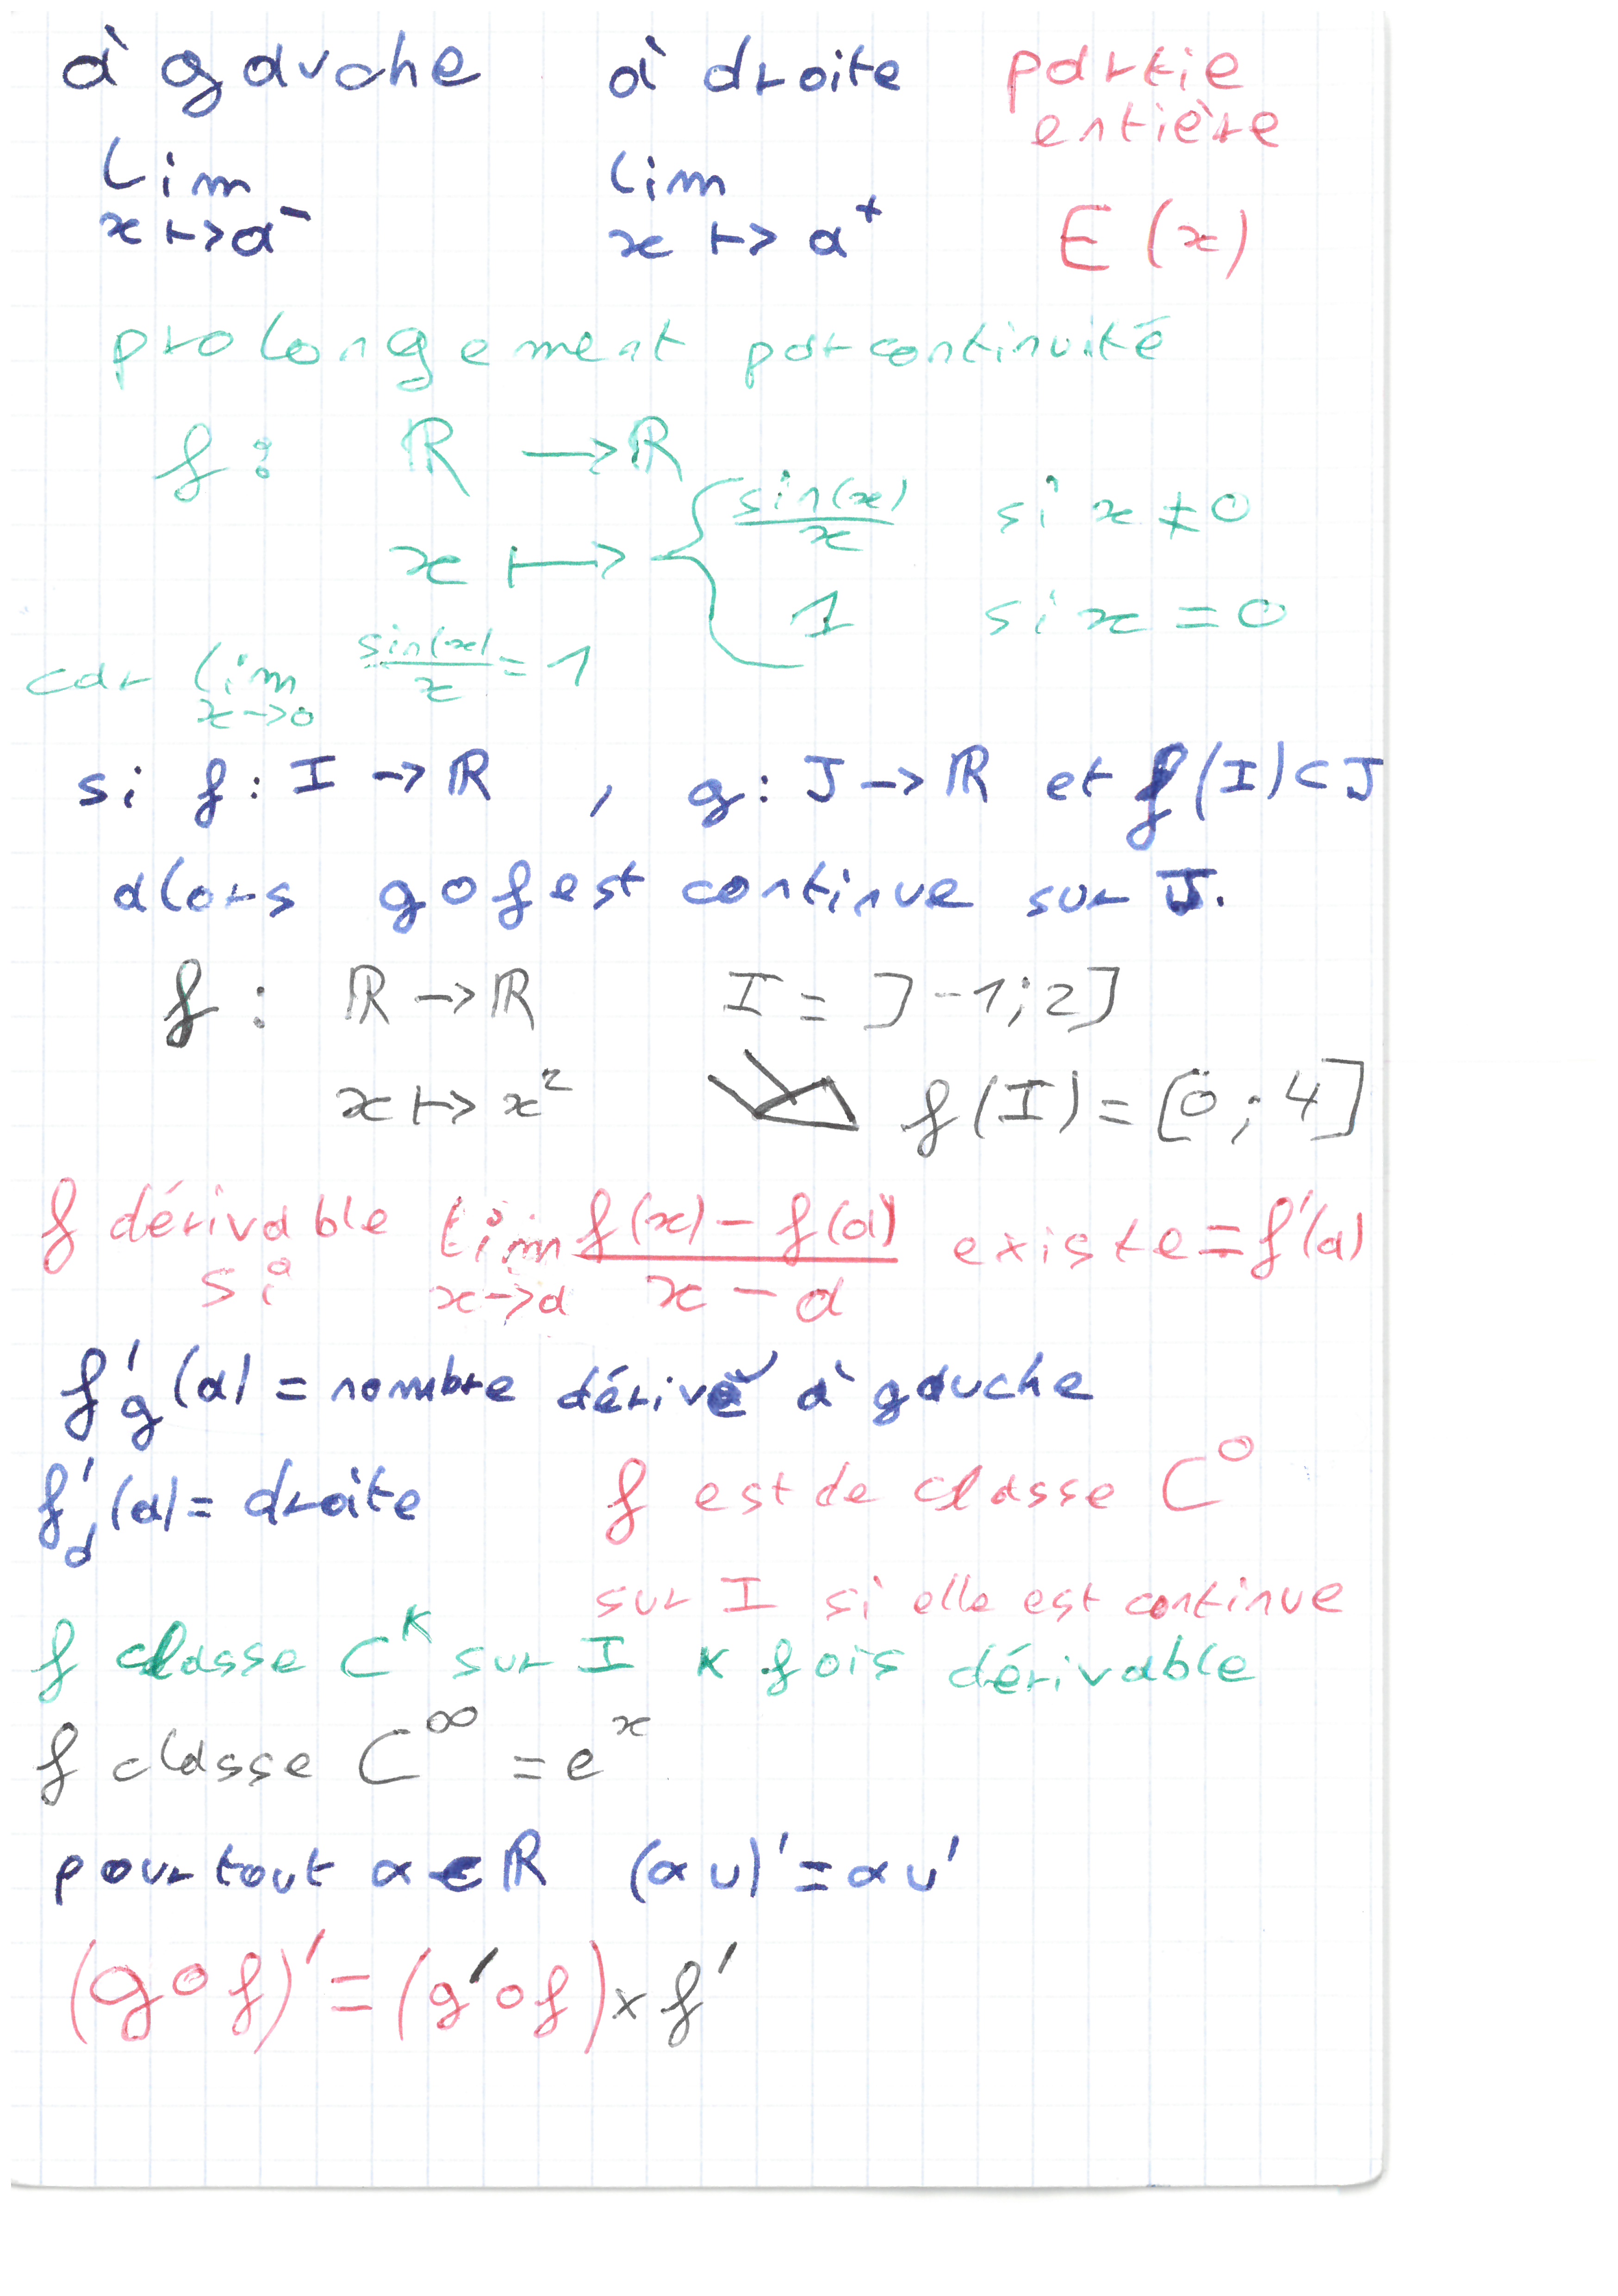 à gauche à droite partie
entière
lim lim
x ↦ a⁻ x ↦ a⁺ E(x)
prolongement par continuité
f : ℝ → ℝ
x ↦ { sin(x)/x si x ≠ 0
1 si x = 0
car lim sin(x)/x = 1
x → 0
si f : I → ℝ , g : J → ℝ et f(I) ⊂ J
alors g o f est continue sur J.
f : ℝ → ℝ I = ]-1 ; 2]
x ↦ x² f(I) = [0 ; 4]
f dérivable lim f(x) - f(a) / x - a existe = f'(a)
si x → a
f'g(a) = nombre dérivé à gauche
f'd(a) = droite f est de classe C⁰
sur I si elle est continue
f classe Cᴷ sur I K fois dérivable
f classe C^∞ = eˣ
pour tout α ∈ ℝ (α u)' = α u'
(g o f)' = (g' o f) × f'